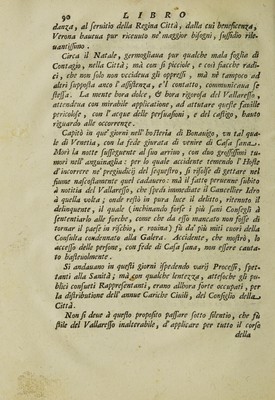 90 LIBRO
danza, al seruitio della Regina Città, dalla cui beneficenza,
Verona haueua pur riceuuto ne' maggior bisogni, sussidio rile-
uantissimo.
Circa il Natale, germogliaua pur qualche mala foglia di
Contagio, nella Città; ma con sì picciole, e così fiacche radi-
ci, che non solo non vccideua gli oppressi, ma nè tampoco ad
altri supposta anco l'assistenza, e'l contatto, communicaua se
stessa. La mente hora dolce, & hora rigorosa del Vallaresso,
attendeua con mirabile applicatione, ad attutare queste fauille
pericolose, con l'acque delle persuasioni, e del castigo, hauto
riguardo alle occorrenze.
Capitò in que' giorni nell'hosteria di Bonauigo, vn tal qua-
le di Venetia, con la fede giurata di venire di Casa sana.
Morì la notte susseguente al suo arriuo, con due grossissimi tu-
mori nell'anguinaglia: per lo quale accidente temendo l'Hoste
d'incorrere ne' pregiudicij del sequestro, si risolse di gettare nel
fiume nascostamente quel cadauero: ma il fatto peruenne subito
à notitia del Vallaresso, che spedì immediate il Cancellier Idro
à quella volta; onde restò in pura luce il delitto, ritenuto il
delinquente, il qual (inchinando forse i più sani Consegli à
sententiarlo alle forche, come che da esso mancato non fosse di
tornar il paese in rischio, e rouina) fù da' più miti cuori della
Consulta condennato alla Galera. Accidente, che mostrò, lo
accesso delle persone, con fede di Casa sana, non essere cauta-
to basteuolmente.
Si andauano in questi giorni ispedendo varij Processi, spet-
tanti alla Sanità; ma con qualche lentezza, attesoche gli pu-
blici consueti Rappresentanti, erano allhora forte occupati, per
la distributione dell'annue Cariche Ciuili, del Consiglio della
Città.
Non si deue à questo proposito passare sotto silentio, che fù
stile del Vallaresso inalterabile, d'applicare per tutto il corso
della